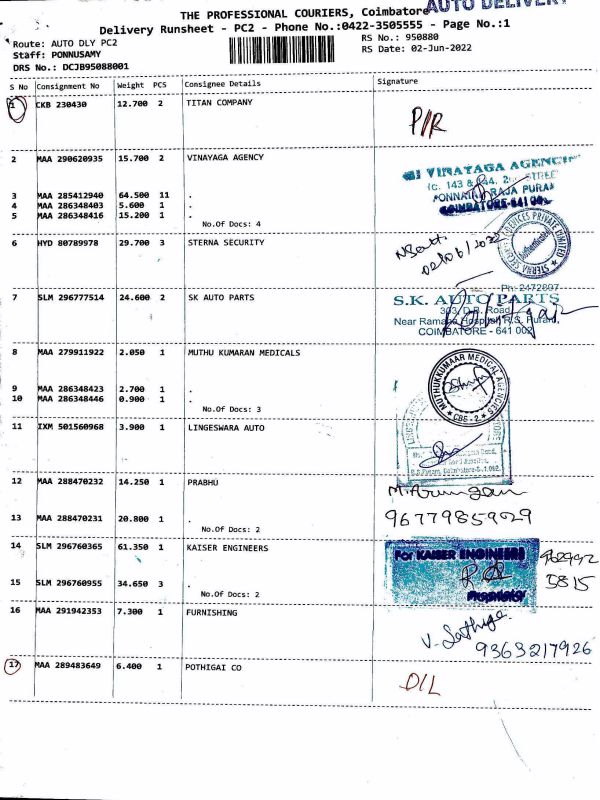 AUTO DELIVERY
THE PROFESSIONAL COURIERS, Coimbatore
Delivery Runsheet - PC2 - Phone No.:0422-3505555 - Page No.:1
Route: AUTO DLY PC2
RS No.: 950880
Staff: PONNUSAMY
RS Date: 02-Jun-2022
DRS No.: DCJB95088001
S No Consignment No Weight PCS Consignee Details Signature
1 CKB 230430 12.700 2 TITAN COMPANY
P/R
2 MAA 290620935 15.700 2 VINAYAGA AGENCY
VINAYAGA AGENCI
3 MAA 285412940 64.500 11 .
4 MAA 286348403 5.600 1 .
5 MAA 286348416 15.200 1 .
No.Of Docs: 4
RAJA PURA
COIMBATORE-641 001
6 HYD 80789978 29.700 3 STERNA SECURITY
02/06/2022
STERNA SECURITY DEVICES PRIVATE LIMITED
7 SLM 296777514 24.600 2 SK AUTO PARTS
Ph: 2472897
S.K. AUTO PARTS
303, D.B. Road
Near Ramana Hospital R.S. Puram,
COIMBATORE - 641 002
8 MAA 279911922 2.050 1 MUTHU KUMARAN MEDICALS
9 MAA 286348423 2.700 1 .
10 MAA 286348446 0.900 1 .
No.Of Docs: 3
MUTHUKKUMAAR MEDICAL AGENCIES
CBE - 2
11 IXM 501560968 3.900 1 LINGESWARA AUTO
12 MAA 288470232 14.250 1 PRABHU
M. Arumugam
13 MAA 288470231 20.800 1 .
No.Of Docs: 2
9677985929
14 SLM 296760365 61.350 1 KAISER ENGINEERS
For KAISER ENGINEERS
Proprietor
15 SLM 296760955 34.650 3 .
No.Of Docs: 2
5815
16 MAA 291942353 7.300 1 FURNISHING
V. Sathiya
9363217926
17 MAA 289483649 6.400 1 POTHIGAI CO
D/L